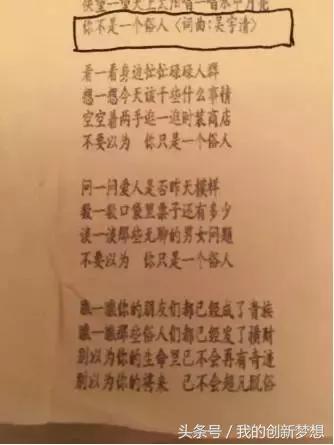 望一望天上太阳
你不是一个俗人〈词曲:吴宇清〉
看一看身边忙忙碌碌人群
想一想今天该干些什么事情
空空着两手逛一逛时装商店
不要以为 你只是一个俗人
问一问爱人是否昨天模样
数一数口袋里票子还有多少
谈一谈那些无聊的男女问题
不要以为 你只是一个俗人
瞧一瞧你的朋友们都已经成了贵族
瞧一瞧那些俗人们都已经发了横财
别以为你的生命里已不会再有奇迹
别以为你的将来 已不会超凡脱俗
头条号 / 我的创新梦想